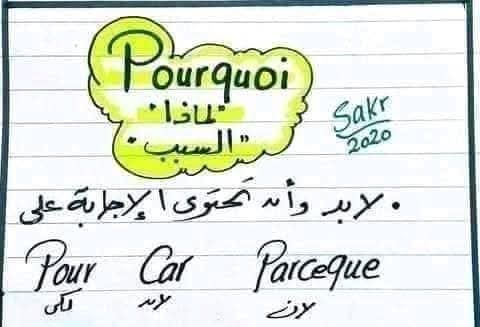 Pourquoi
لماذا
"السبب"
Sakr
2020
. لابد وأن تحتوى الإجابة على
Pour Car Parceque
لكى لأن لأن